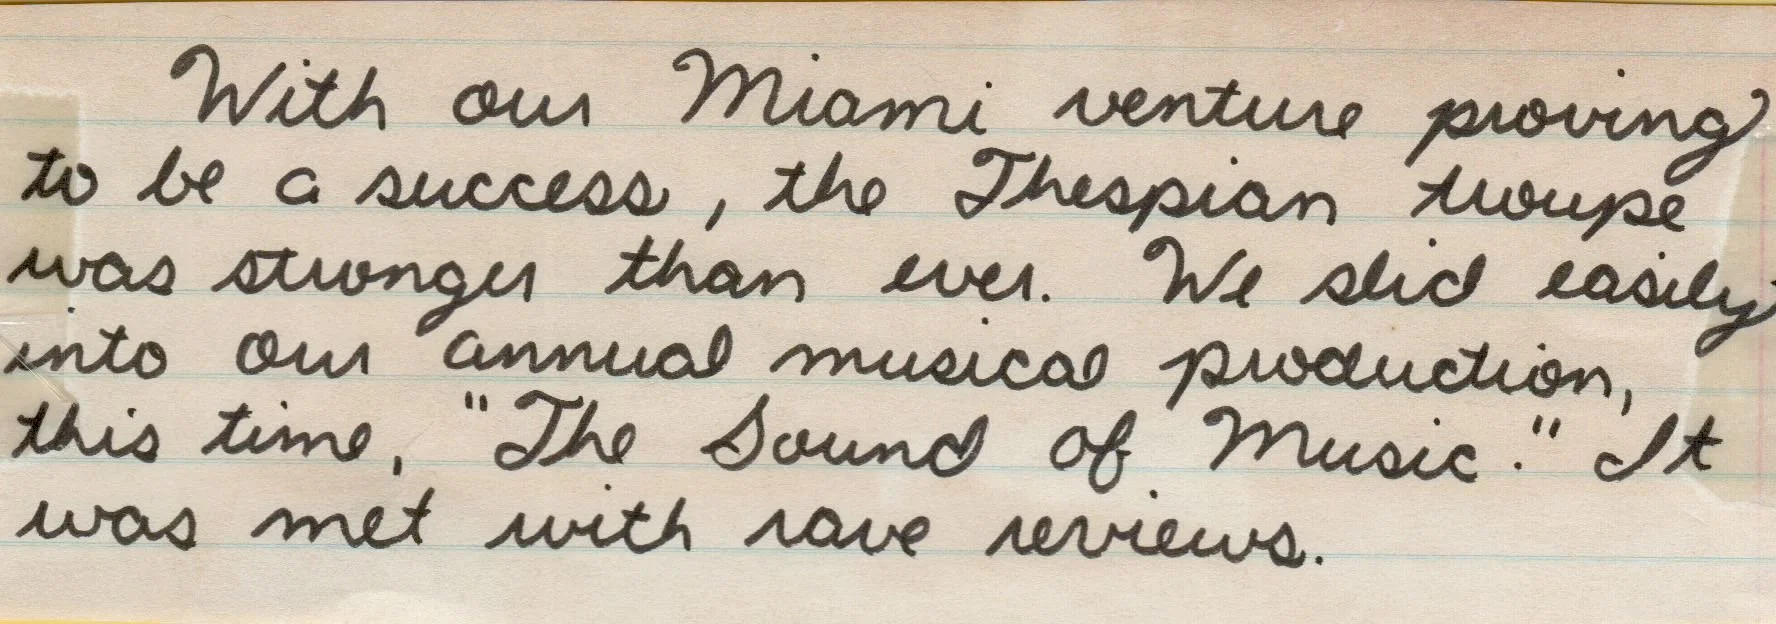 With our Miami venture proving
to be a success, the Thespian troupe
was stronger than ever. We slid easily
into our annual musical production,
this time, "The Sound of Music." It
was met with rave reviews.